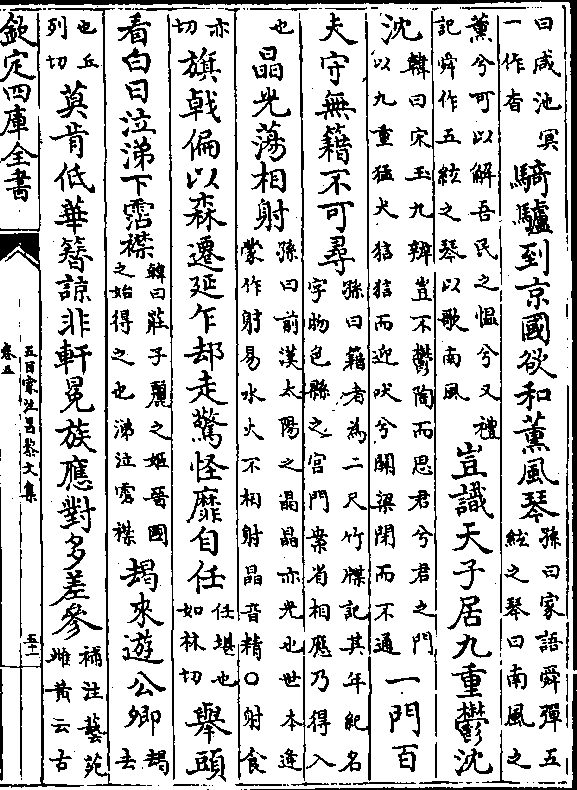 曰咸池冥
一作杳
騎驢到京國欲和薰風琴
孫曰家語舜彈五
絃之琴曰南風之
薰兮可以解吾民之慍兮又禮
記舜作五絃之琴以歌南風
豈識天子居九重鬱沈
沈
韓曰宋玉九辨豈不鬱陶而思君兮君之門
以九重猛犬狺狺而迎吠兮關梁閉而不通
一門百
夫守無籍不可尋
孫曰籍者為二尺竹牒記其年紀名
字物色縣之宮門案省相應乃得入
也
晶光蕩相射
孫曰前漢太陽之晶晶亦光也世本逄
蒙作射易水火不相射晶音精○射食
亦
切
旗戟偏以森遷延乍却走驚怪靡自任
任堪也
如林切
舉頭
看白日泣涕下霑襟
韓曰莊子麗之姬晉國
之始得之也涕泣霑襟
朅來遊公卿
朅
去
也丘
列切
莫肯低華簪諒非軒冕族應對多差參
補注藝苑
雌黃云古
欽定四庫全書
五百家注昌黎文集
卷五
五十一